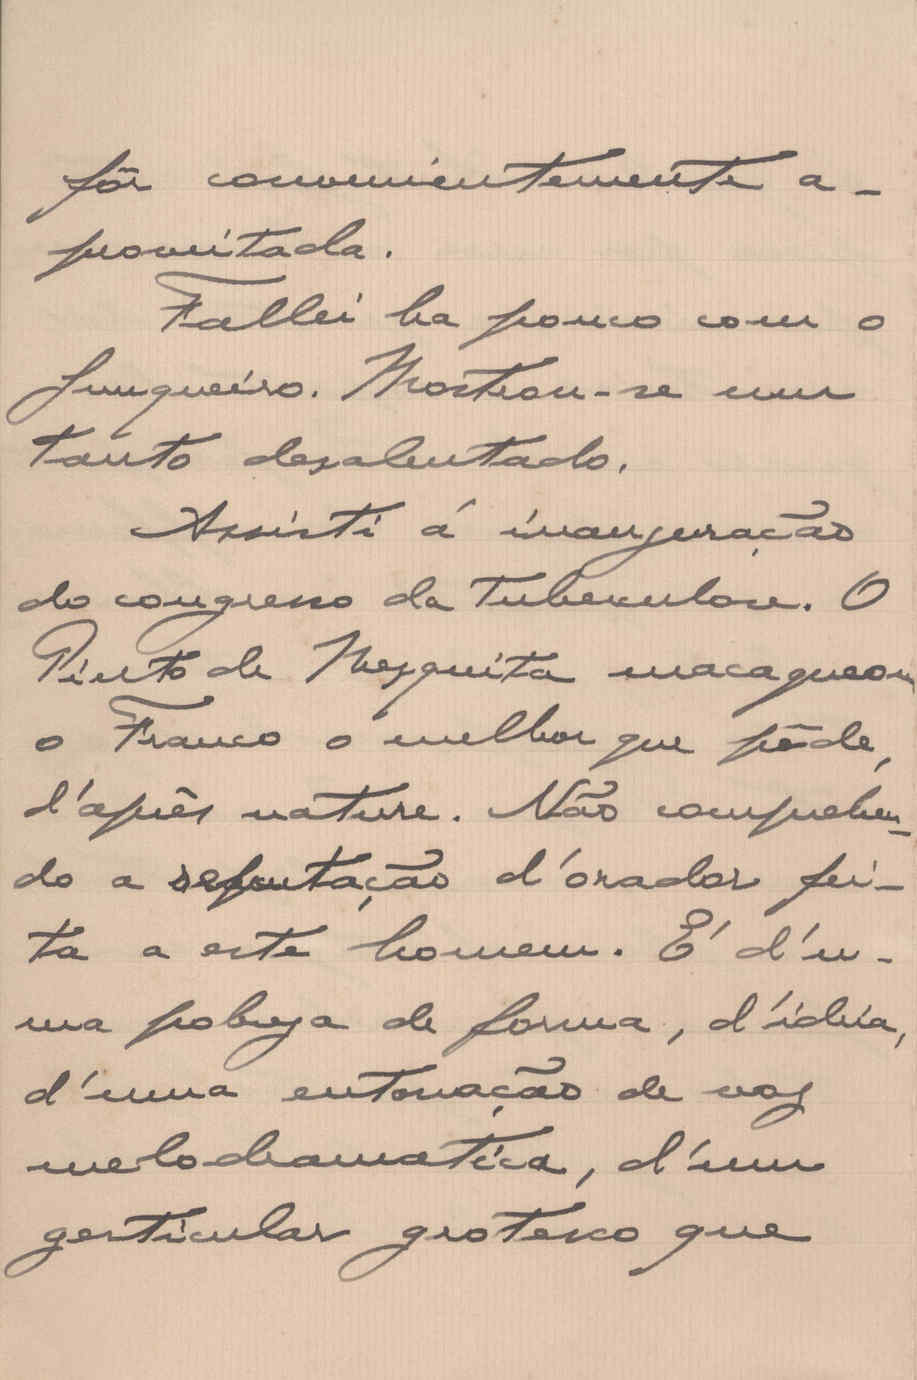 fôr convenientemente a-
proveitada.
Fallei ha pouco com o
Junqueiro. Mostrou-se um
tanto desalentado.
Assisti á inauguração
do congresso da Tuberculose. O
Pinto de Mesquita macaqueou
o Franco o melhor que pôde,
d'après nature. Não comprehen-
do a reputação d'orador fei-
ta a este homem. É d'u-
ma pobreza de forma, d'ideia,
d'uma entonação de voz
melodramatica, d'um
gesticular grotesco que